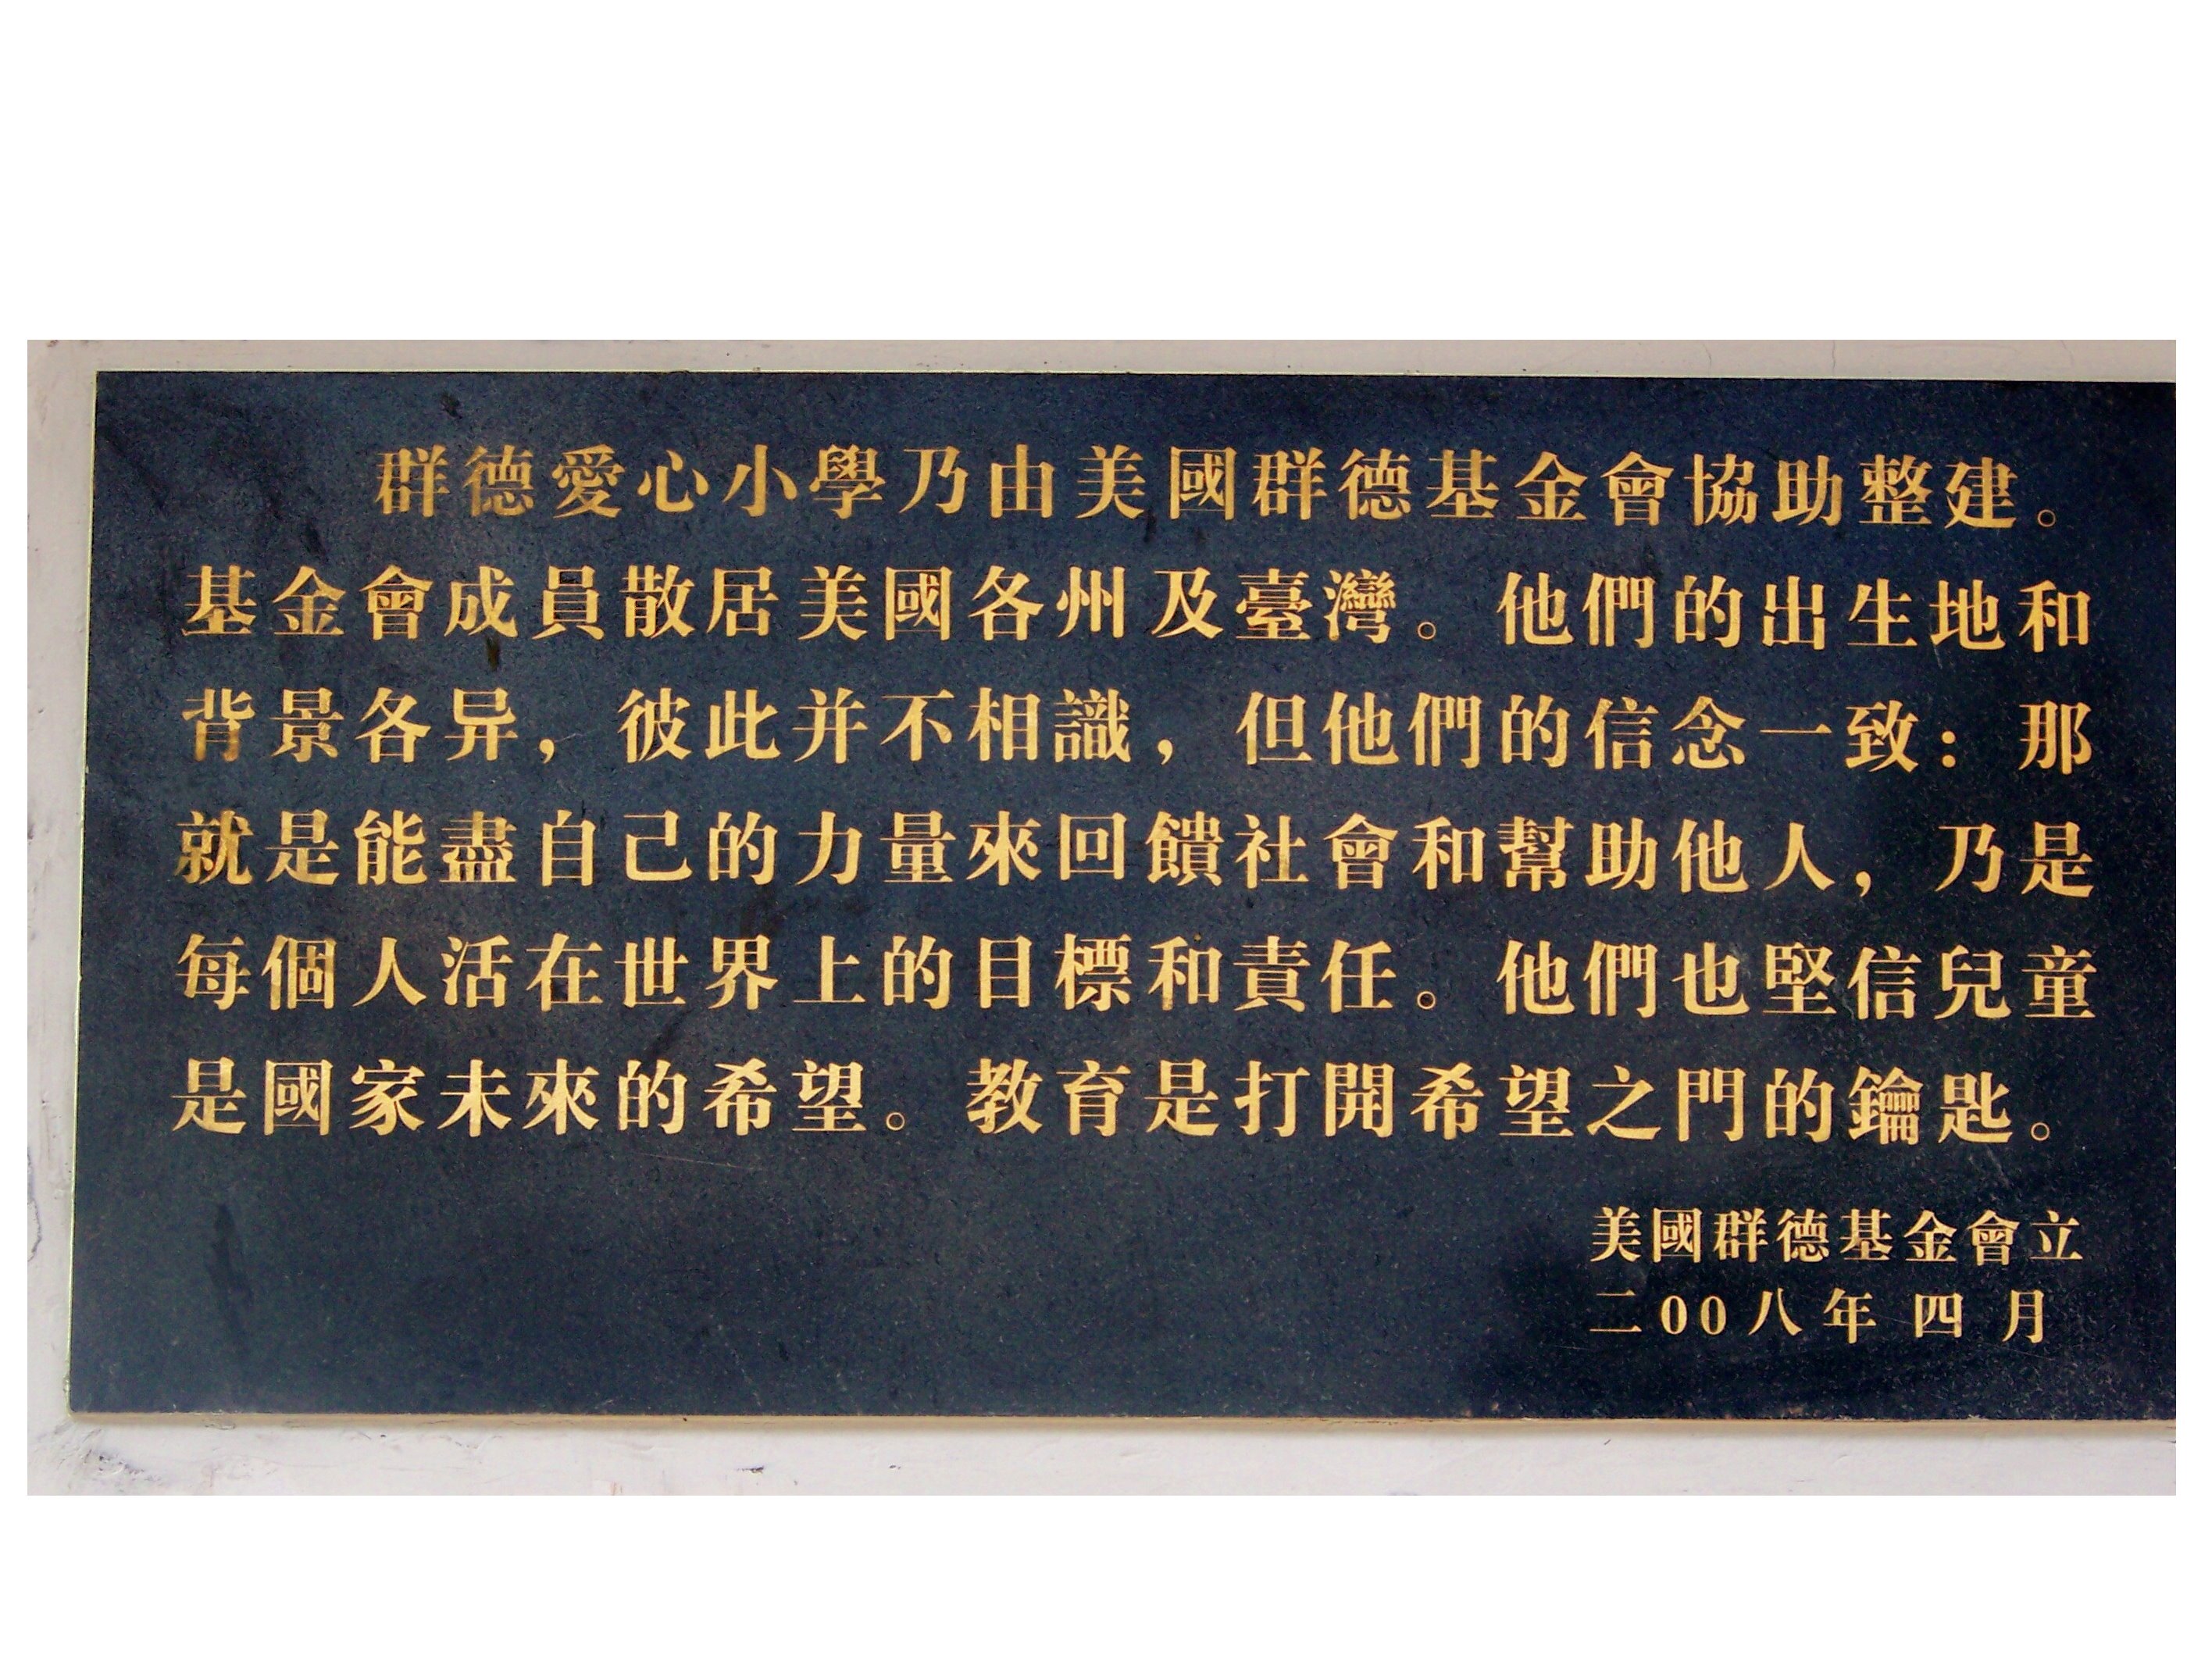 群德愛心小學乃由美國群德基金會協助整建。
基金會成員散居美國各州及臺灣。他們的出生地和
背景各异，彼此并不相識，但他們的信念一致：那
就是能盡自己的力量來回饋社會和幫助他人，乃是
每個人活在世界上的目標和責任。他們也堅信兒童
是國家未來的希望。教育是打開希望之門的鑰匙。
美國群德基金會立
二00八年四月